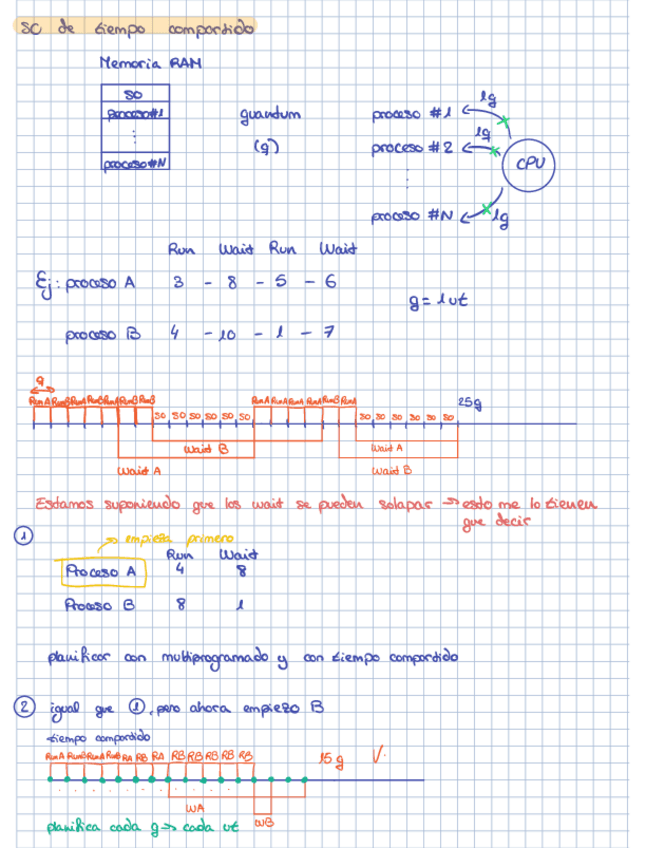 SC de tiempo compartido
Memoria RAM
SO
proceso#1
⋮
proceso#N
quantum
(q)
proceso #1
1q
proceso #2
1q
⋮
proceso #N
1q
CPU
Run Wait Run Wait
Ej: proceso A 3 - 8 - 5 - 6
q = 1ut
proceso B 4 - 10 - 1 - 7
q
RunA RunB RunA RunB RunA RunB RunB
SO SO SO SO SO SO
RunA RunA RunA RunA RunB RunA
SO SO SO SO SO SO
25q
Wait B
Wait A
Wait A
Wait B
Estamos suponiendo que los wait se pueden solapar → esto me lo tienen
que decir
① → empieza primero
Run Wait
Proceso A 4 8
Proceso B 8 1
planificar con multiprogramado y con tiempo compartido
② igual que ①, pero ahora empiezo B
tiempo compartido
RunA RunB RunA RunB RA RB RA RB RB RB RB RB
15q V.
WA
WB
planifica cada q → cada ut